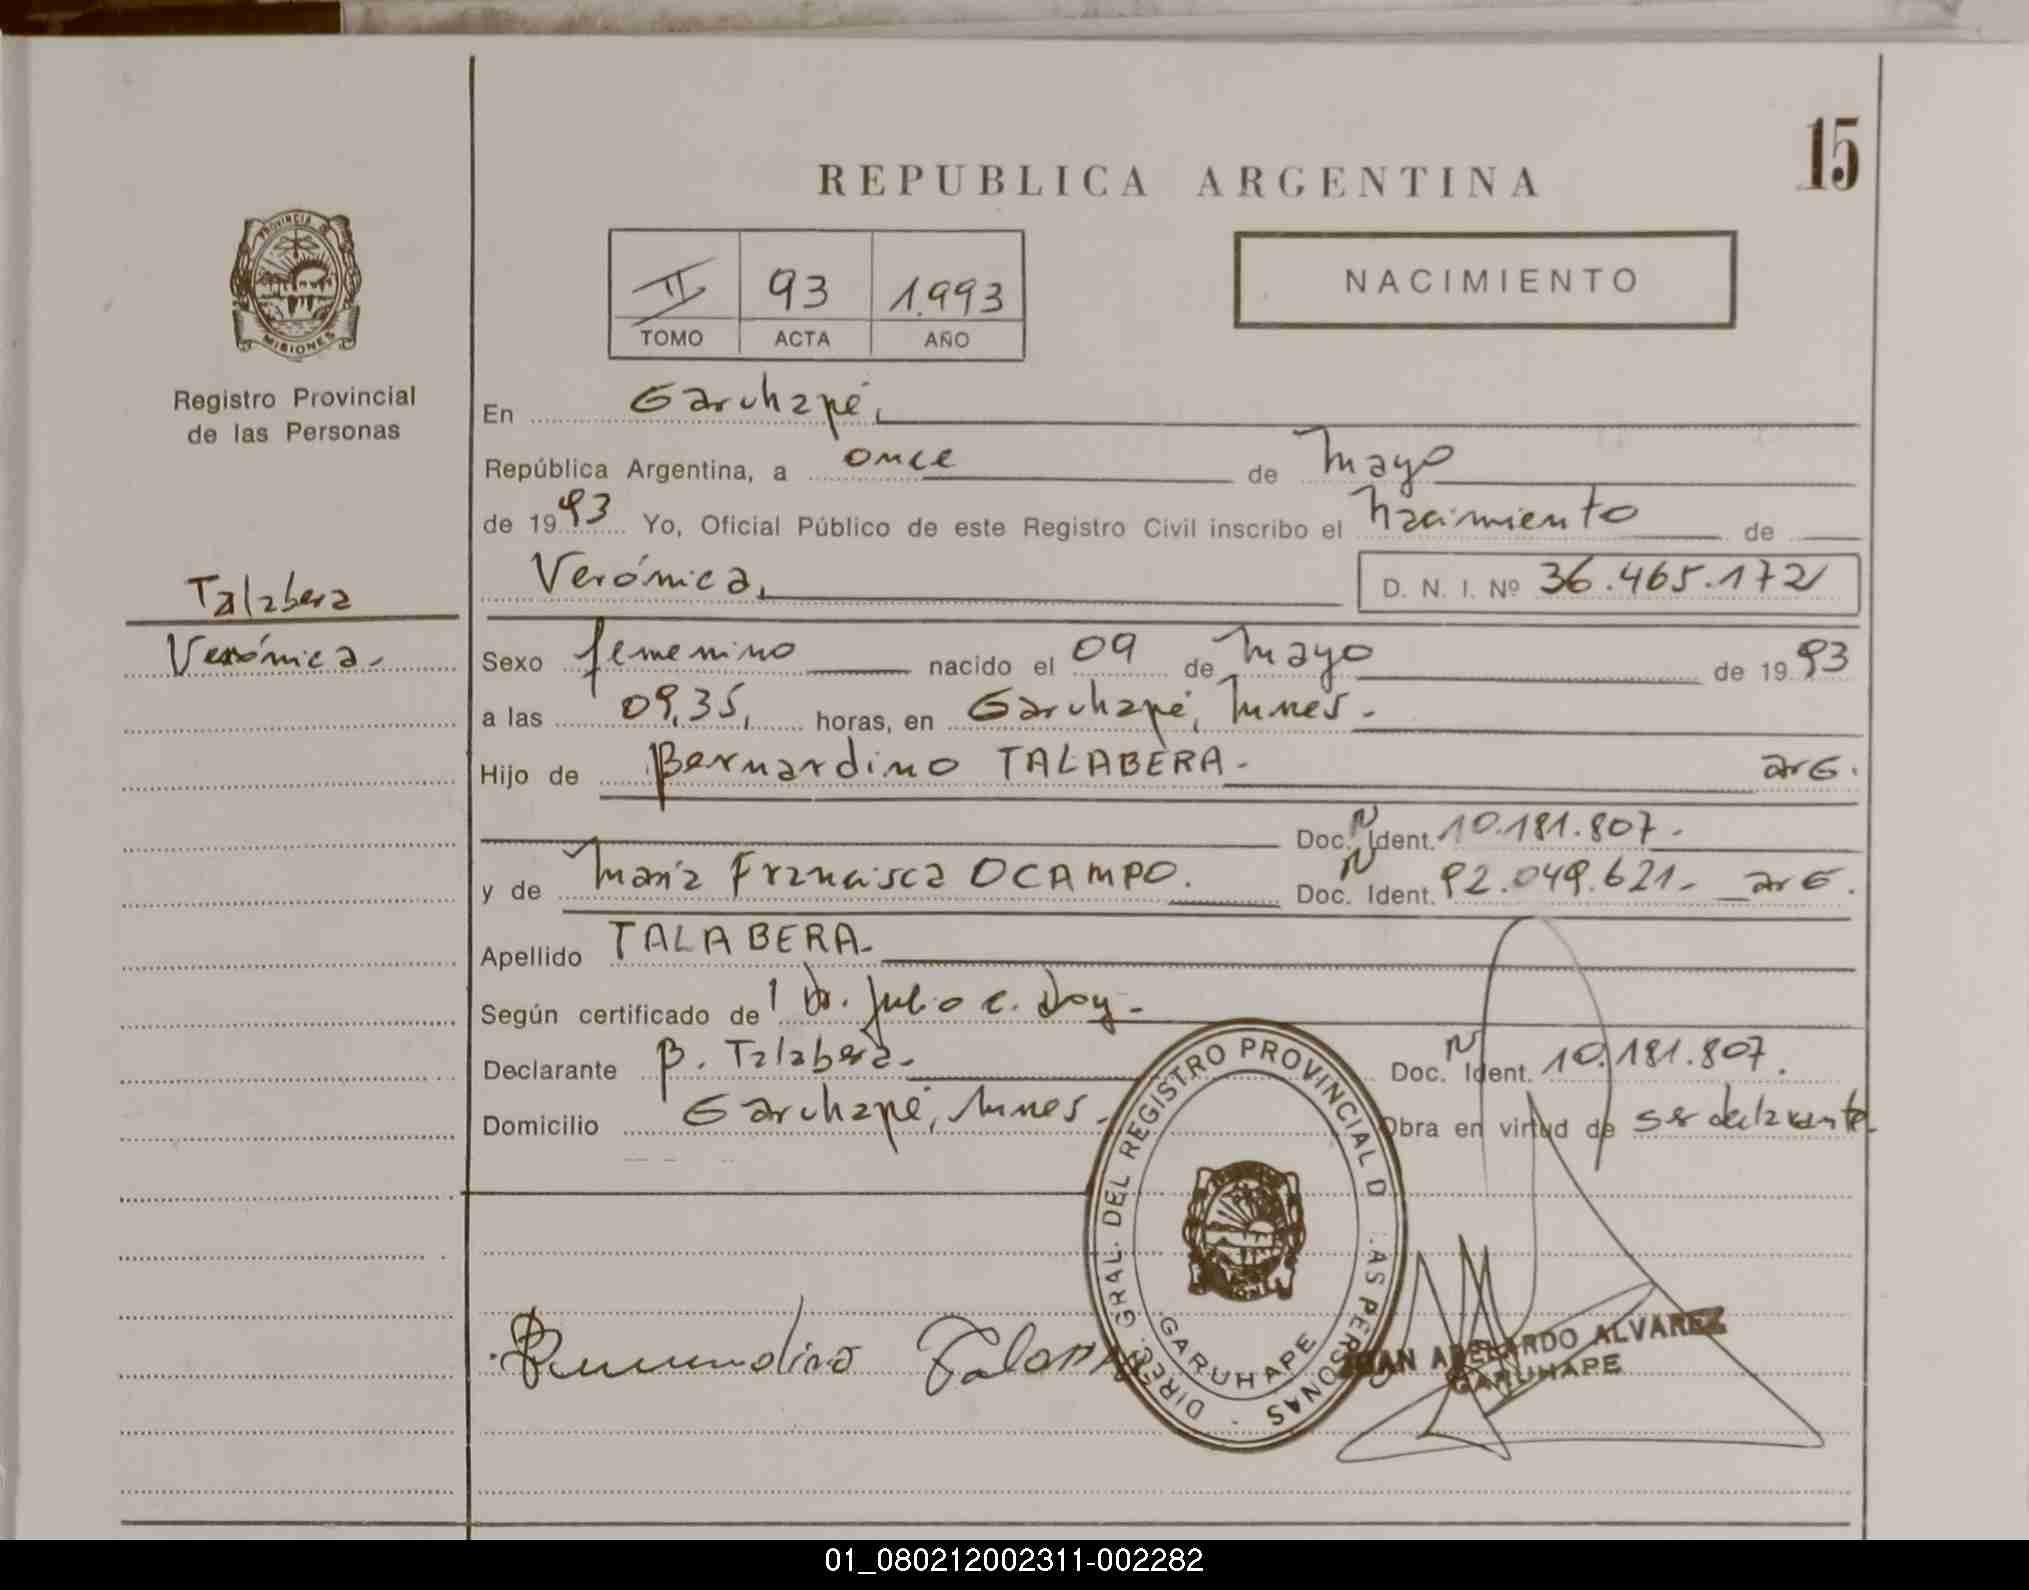 15
REPUBLICA ARGENTINA
PROVINCIA DE
MISIONES
II 93 1.993
TOMO ACTA AÑO
NACIMIENTO
Registro Provincial
de las Personas
Talabera
Verónica.
En Garuhapé,
República Argentina, a once de Mayo
de 1993 Yo, Oficial Público de este Registro Civil inscribo el Nacimiento de
Verónica, D. N. I. Nº 36.465.172
Sexo femenino nacido el 09 de Mayo de 1993
a las 09,35, horas, en Garuhapé, Mnes.
Hijo de Bernardino TALABERA. arg.
Doc. N Ident. 10.181.807.
y de María Francisca OCAMPO. Doc. N Ident. 92.049.621. arg.
Apellido TALABERA.
Según certificado de Dr. Julio C. Doy.
Declarante B. Talabera. Doc. N Ident. 10.181.807.
Domicilio Garuhapé, Mnes. Obra en virtud de ser declarante.
DIREC. GRAL. DEL REGISTRO PROVINCIAL D AS PERSONAS
GARUHAPE
JUAN ABELARDO ALVAREZ
GARUHAPE
01_080212002311-002282